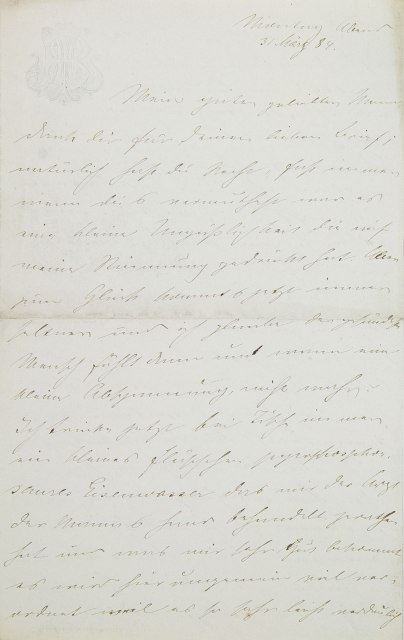 31 März 84.
Meine guten geliebten
danke dir für Deinen lieben Brief,
natürlich hast du Recht, fast immer
wenn du es vermuthest war es
eine kleine die auf
meine Stimmung gedrückt hat.
zum Glück kommt es jetzt immer
seltener und ich glaube der gesündeste
Mensch fühlt dann und wann eine
kleine Abspannung, nicht wahr.
Ich trinke jetzt bei Tisch immer
ein kleines Fläschchen pyrophosphor-
saures Eisenwasser das mir der Arzt
der behandelt
hat und was mir sehr gut bekommt
es wird hier ungemein viel ver-
ordnet weil es so sehr leicht verdaulich